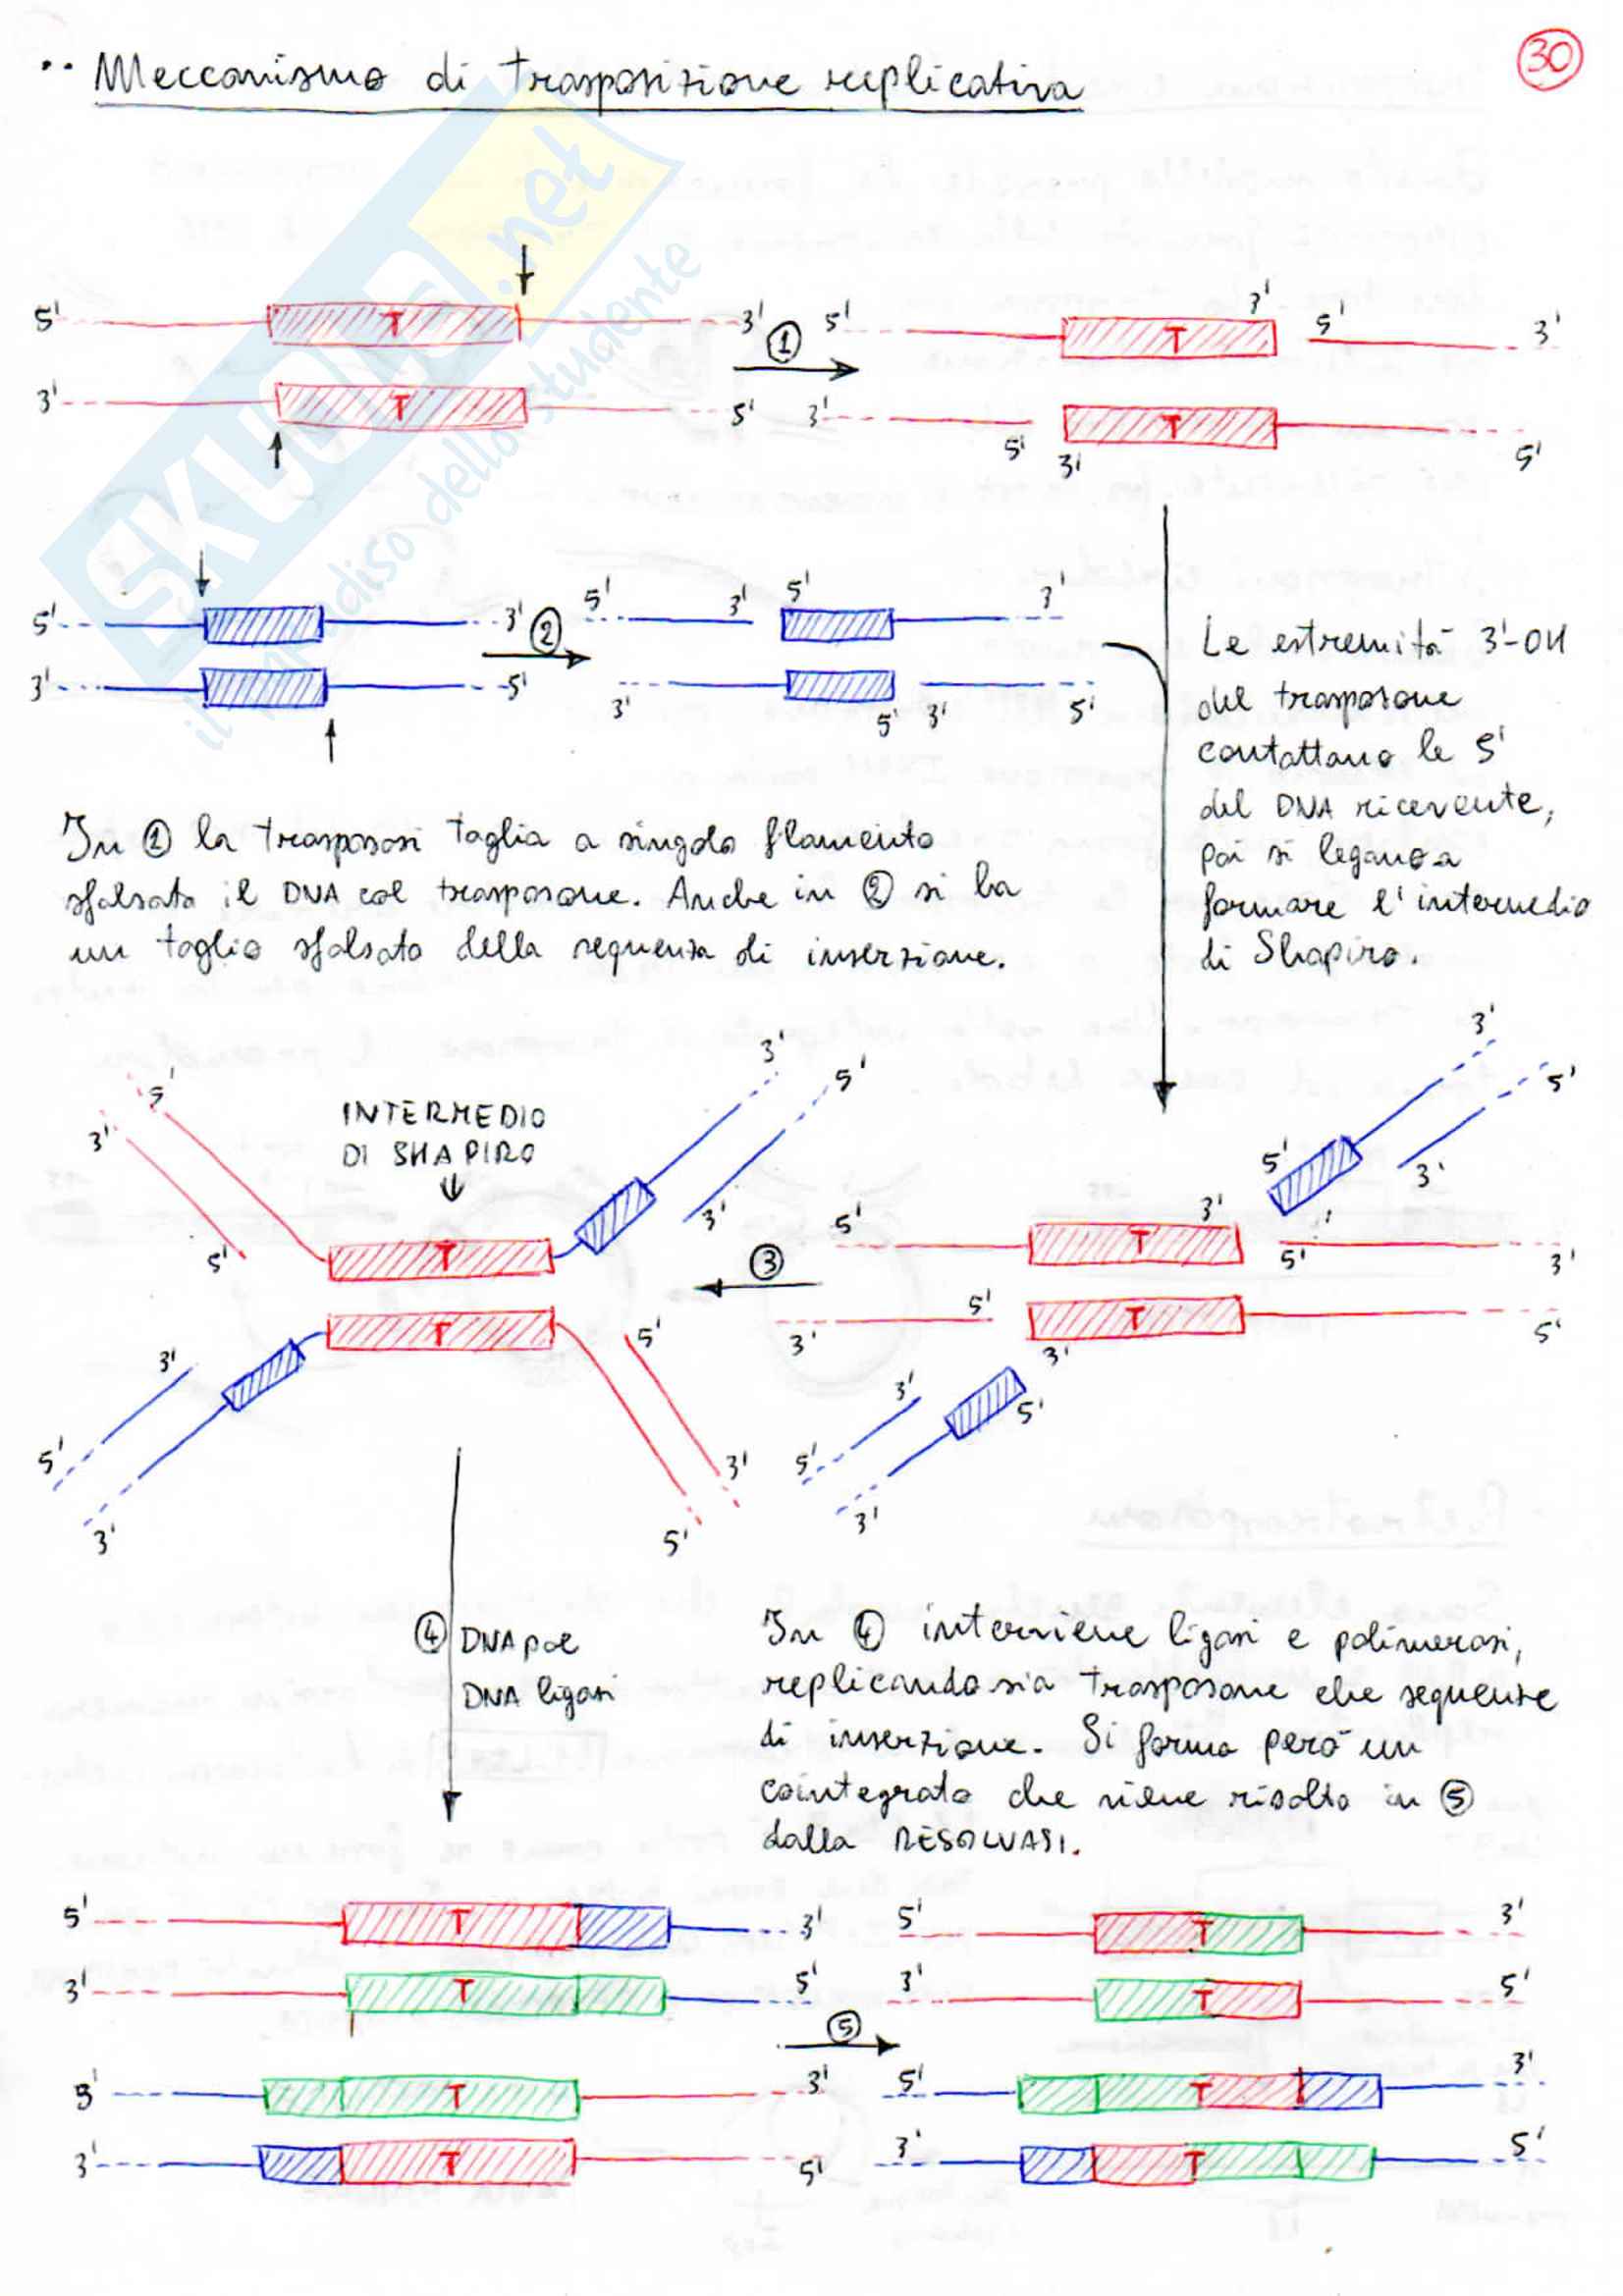 ·· Meccanismo di trasposizione replicativa
30
SKUOLA.net
il paradiso dello studente
5' T 3' 1 5' T 3' 5' 3'
3' T 5' 3' 5' 3' T 5'
5' 3' 2 5' 3' 5' 3'
3' 5' 3' 5' 3' 5'
Le estremità 3'-OH
del trasposone
contattano le 5'
del DNA ricevente,
poi si legano a
formare l'intermedio
di Shapiro.
In 1 la trasposasi taglia a singolo filamento
sfalsato il DNA col trasposone. Anche in 2 si ha
un taglio sfalsato della sequenza di inserzione.
5' 3' 5'
3'
INTERMEDIO
DI SHAPIRO
5' T 3'
T
3' 5'
5' 3' 3'
5'
3' 5'
5' 3'
5' T 3' 5' 3'
3' 5' T 3' 5'
3' 5'
5' 3'
3
4 DNA pol
DNA ligasi
In 4 interviene ligasi e polimerasi,
replicando sia trasposone che sequenze
di inserzione. Si forma però un
cointegrato che viene risolto in 5
dalla RESOLVASI.
5' T 3' 5' T 3'
3' T 5' 3' T 5'
5
5' T 3' 5' T 3'
3' T 5' 3' T 5'